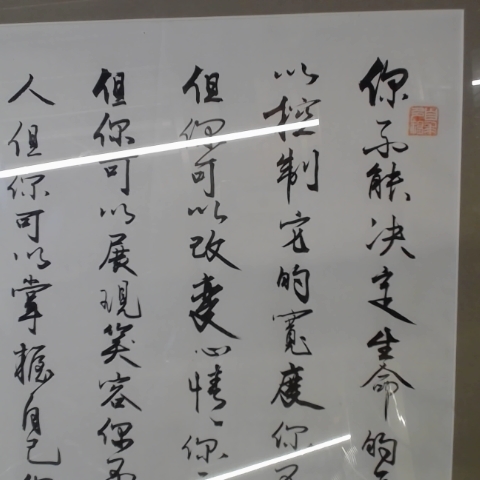 你不能决定生命的
以控制它的寬度你不
但你可以改变心情你
但你可以展現笑容你不
人但你可以掌握自己